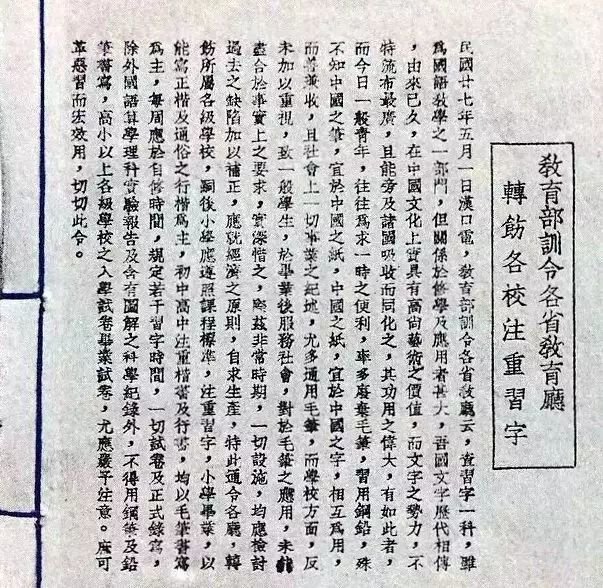 教育部訓令各省教育廳
轉飭各校注重習字
民國廿七年五月一日漢口電，教育部訓令各省教廳云，查習字一科，雖
爲國語教學之一部門，但關係於修學及應用者甚大，吾國文字歷代相傳
，由來已久，在中國文化上實具有高尚藝術之價值，而文字之勢力，不
特流布最廣，且能旁及諸國吸收而同化之，其功用之偉大，有如此者，
而今日一般青年，往往爲求一時之便利，率多廢棄毛筆，習用鋼鉛，殊
不知中國之筆，宜於中國之紙，中國之紙，宜於中國之字，相互爲用，
而善兼收，且社會上一切事業之紀述，尤多通用毛筆，而學校方面，反
未加以重視，致一般學生，於畢業後服務社會，對於毛筆之應用，未能
盡合於事實上之要求，實深惜之，際茲非常時期，一切設施，均應檢討
過去之缺陷加以補正，應就經濟之原則，自求生產，特此通令各廳，轉
飭所屬各級學校，嗣後小學應遵照課程標準，注重習字，小學畢業，以
能寫正楷及通俗之行楷爲主，初中高中注重楷書及行書，均以毛筆書寫
爲主，每周應於自修時間，規定若干習字時間，一切試卷及正式錄寫，
除外國語算學理科實驗報告及含有圖解之科學紀錄外，不得用鋼筆及鉛
筆書寫，高小以上各級學校之入學試卷畢業試卷，尤應嚴予注意。庶可
革惡習而宏效用，切切此令。